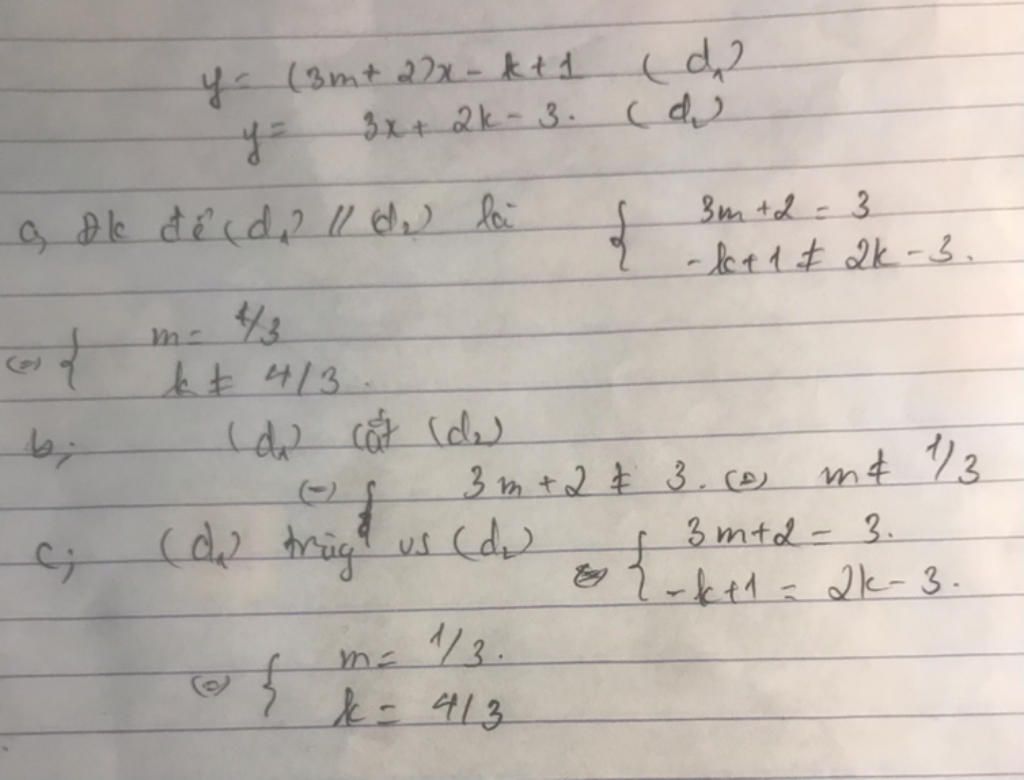 y = (3m + 2)x - k + 1 (d₁)
y = 3x + 2k - 3. (d₂)
a, Đk để (d₁) // (d₂) là { 3m + 2 = 3
-k + 1 ≠ 2k - 3.
(=) { m = 1/3
k ≠ 4/3.
b; (d₁) cắt (d₂)
(=) { 3m + 2 ≠ 3. (=) m ≠ 1/3
c; (d₁) trùg vs (d₂) { 3m + 2 = 3.
-k + 1 = 2k - 3.
(=) { m = 1/3.
k = 4/3